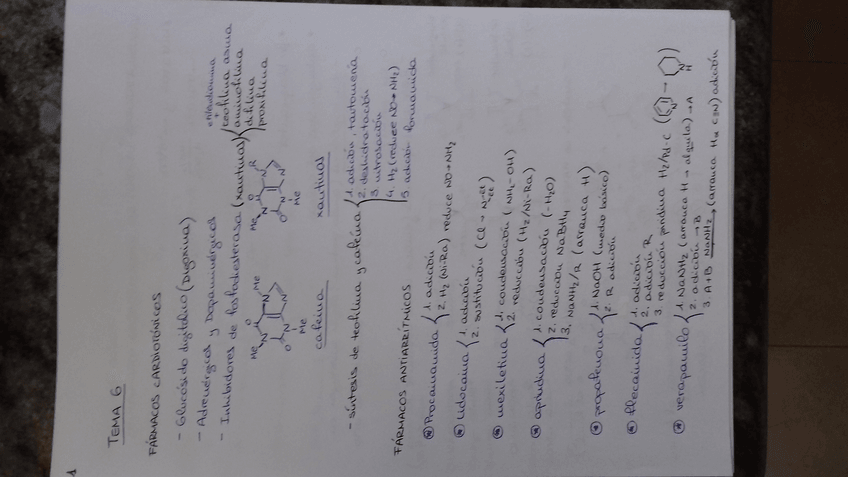 1
TEMA 6
FÁRMACOS CARDIOTÓNICOS
- Glucósido digitálico (Digoxina)
- Adrenérgicos y Dopaminérgicos
- Inhibidores de fosfodiesterasa (xantinas)
etilendiamina
+
teofilina asma
aminofilina
difilina
proxifilina
Me O Me
N N
O N N
Me
cafeína
Me O R
N N
O N N
Me
xantinas
- síntesis de teofilina y cafeína
1. adición, tautomería
2. deshidratación
3 nitrosación
4. H2 (reduce NO→NH2)
5 adición formamida
FÁRMACOS ANTIARRÍTMICOS
Procainamida
1. adición
2. H2 (Ni-Ra) reduce NO→NH2
lidocaína
1. adición
2. sustitución (Cl → N-et et)
mexiletina
1. condensación (NH2-OH)
2. reducción (H2/Ni-Ra)
aprindina
1. condensación (-H2O)
2. reducción NaBH4
3, NaNH2/R (arranca H)
propafenona
1. NaOH (medio básico)
2. R adición
flecainida
1. adición
2. adición R
3. reducción piridina H2/Pd-C (N → N H)
verapamilo
1 NaNH2 (arranca H → alquila) → A
2. adición → B
3 A+B NaNH2 → (arranca Hα C≡N) adición